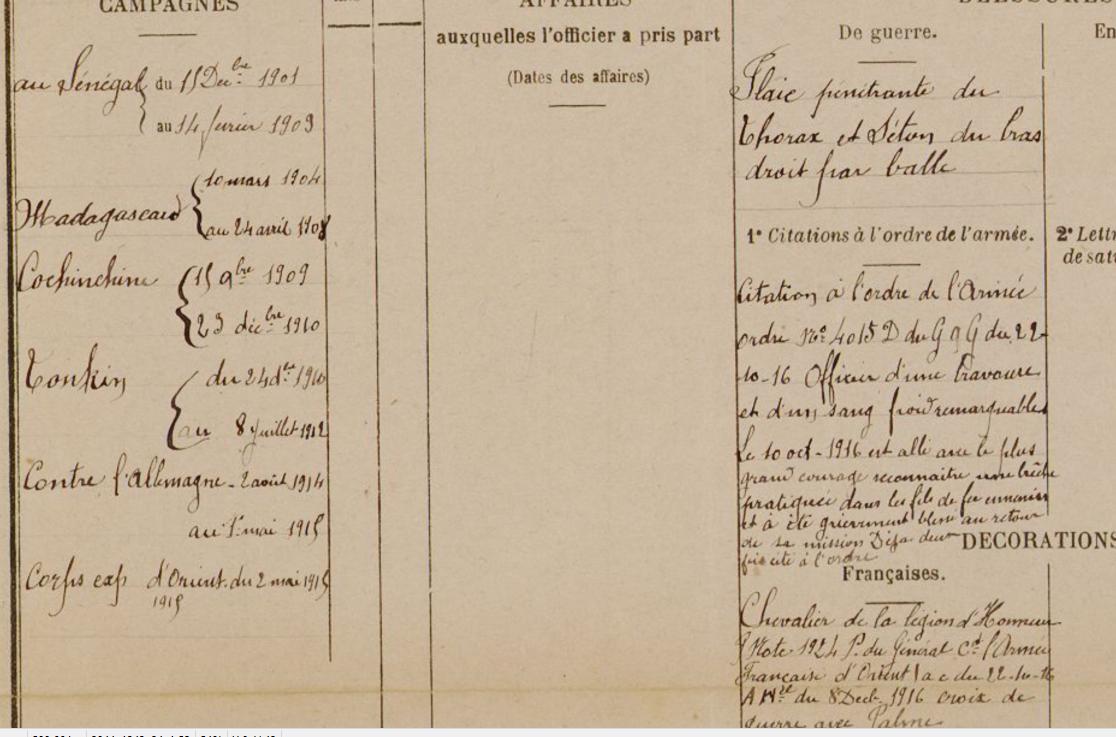 CAMPAGNES
au Sénégal du 15 Decbre 1901
au 14 fevrier 1903
Madagascar 10 mars 1904
au 24 avril 1908
Cochinchine 15 9bre 1909
23 décbre 1910
Tonkin du 24 dbre 1910
au 8 Juillet 1912
Contre l'Allemagne - 2 août 1914
au 1er mai 1915
Corps exp d'Orient. du 2 mai 1915
1915
AFFAIRES
auxquelles l'officier a pris part
(Dates des affaires)
BLESSURES
De guerre.
En
Plaie pénétrante du
thorax et Séton du bras
droit par balle
1° Citations à l'ordre de l'armée.
2° Lettr
de sat
Citation à l'ordre de l'Armée
ordre No 4015 D du G q G du 22-
10-16 Officier d'une bravoure
et d'un sang froid remarquables
Le 10 oct - 1916 est allé avec le plus
grand courage reconnaitre une brèche
pratiquée dans les fils de fer ennemis
et à été grièvement blessé au retour
de sa mission Déja deux
fois cité à l'ordre
DECORATIONS
Françaises.
Chevalier de la légion d'Honneur
Note 1924 P. du Général Ct l'Armée
Française d'Orient a c du 22-10-16
du 8 Decb. 1916 croix de
guerre avec Palme